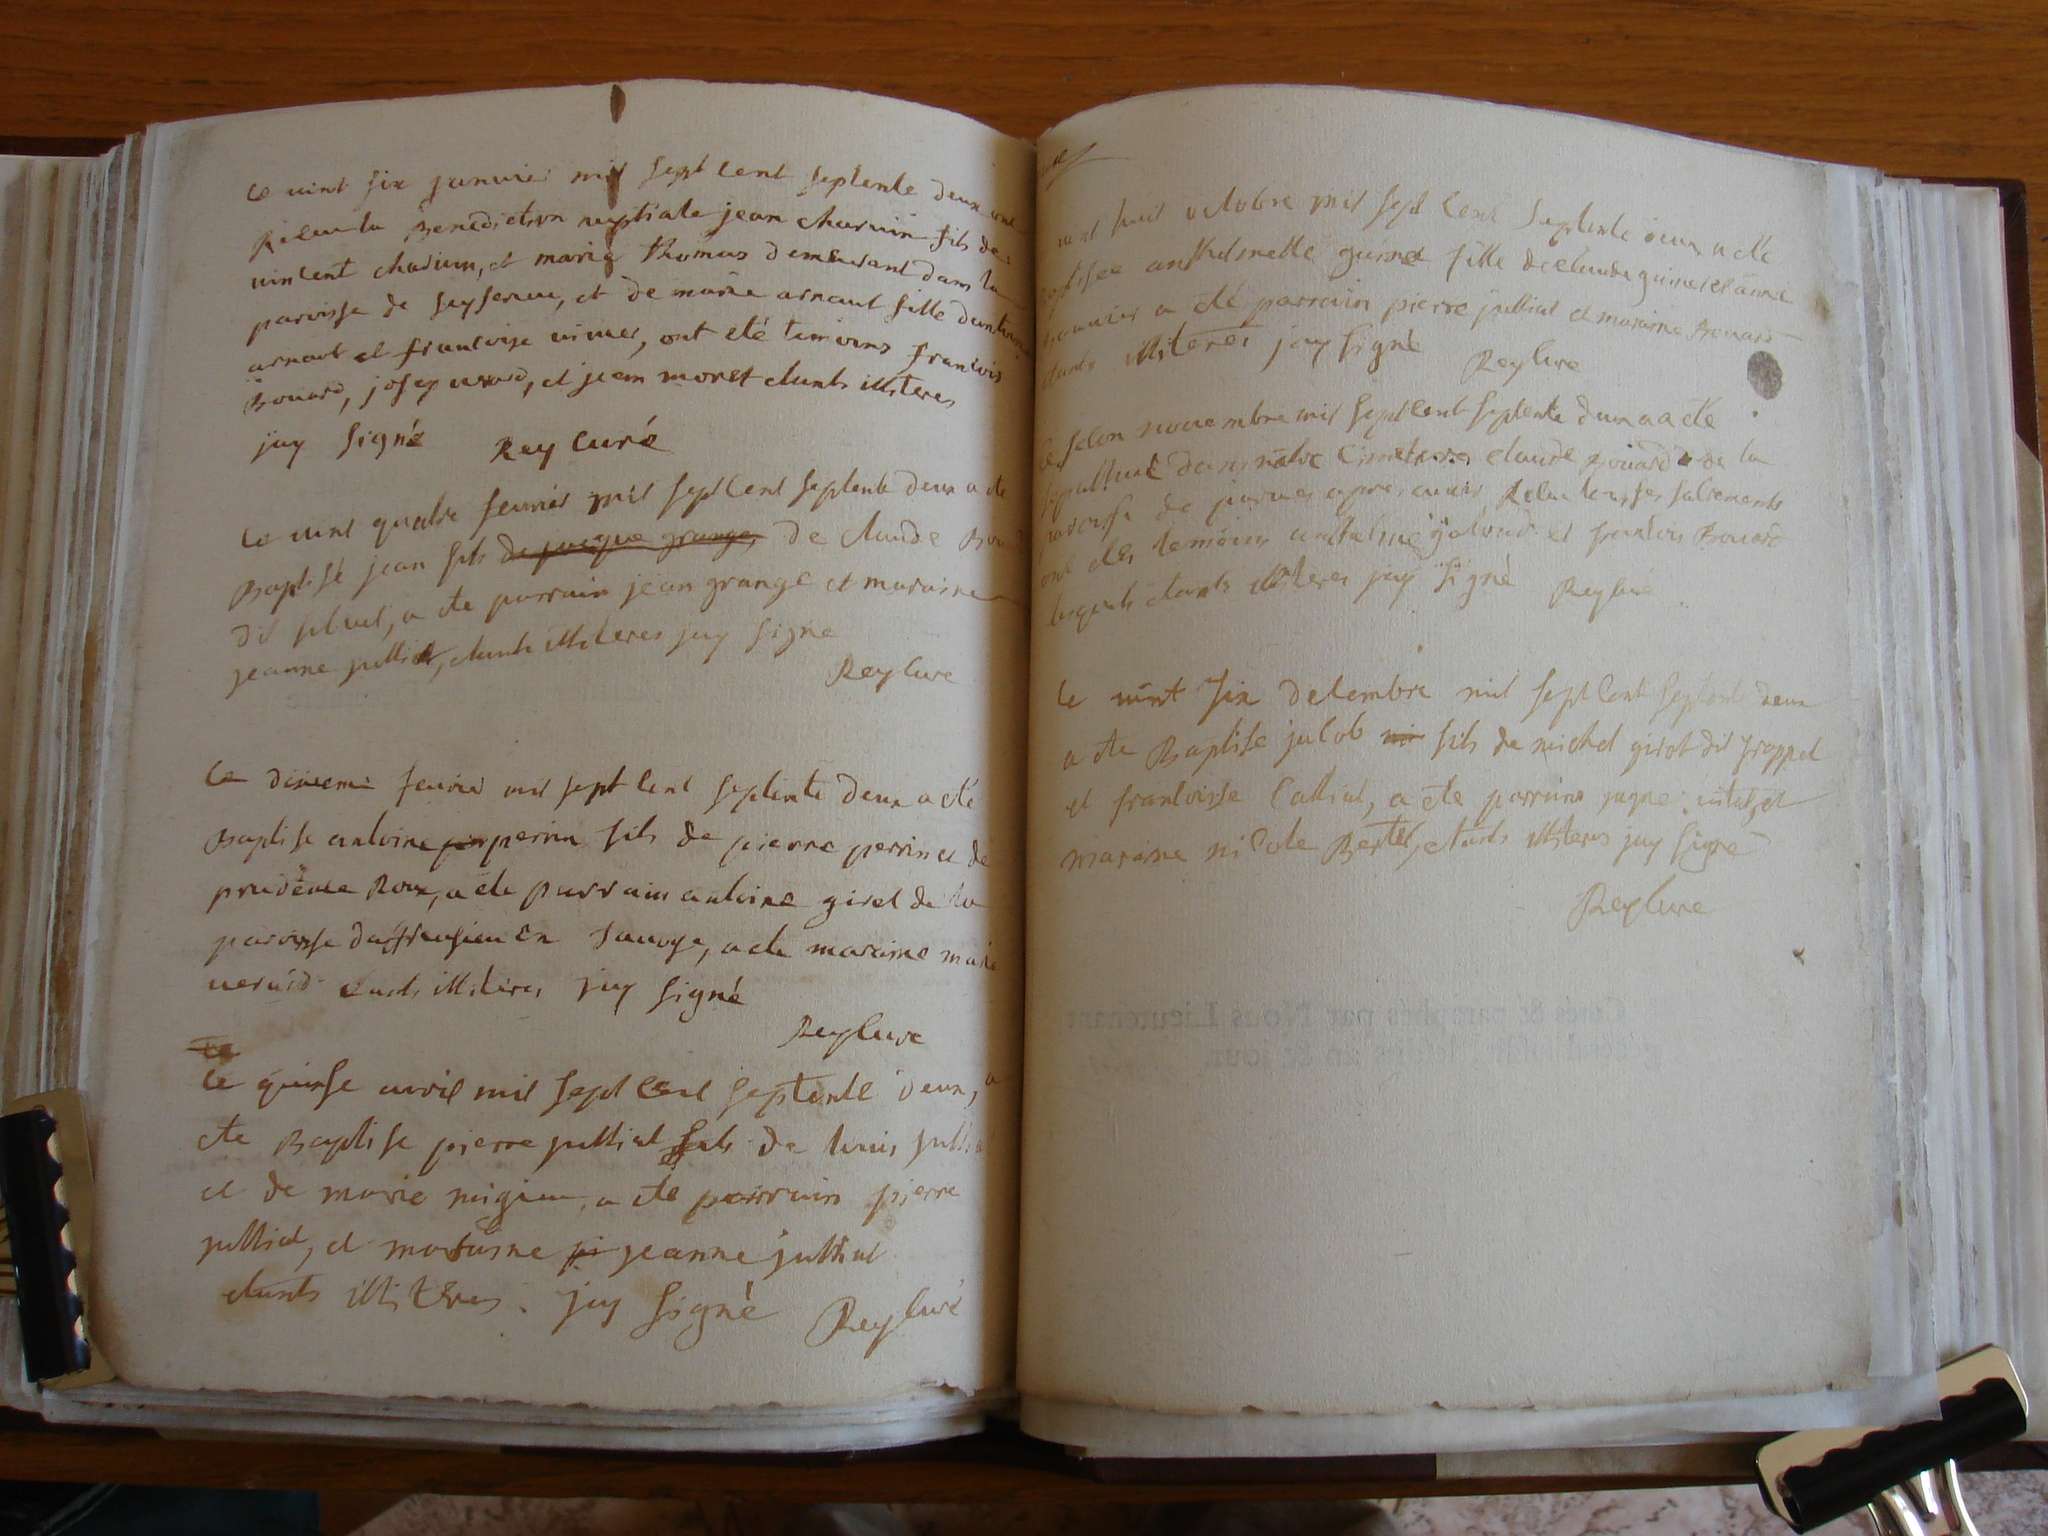 le vint six janvier mil sept cent septente deux ont
Receu la Benediction nuptiale jean charvin fils de
vincent charvin, et marie thomas demeurant dans la
paroisse de seyserieu, et de marie arnaut fille dantoine
arnaut et francoise vivier, ont eté temoins francois
Bouard, josep, et jean moret etants illiteres
jay signé Rey curé
le vint quatre fevrier mil sept cent septente deux a ete
Baptisé jean fils de jacque grange, de claude
dit, a ete parrain jean grange et maraine
jeanne julliat, etants illiteres jay signe
Rey cure
le fevrier mil sept cent septente deux a eté
Baptise antoine perrin fils de pierre perrin et de
prudence Roux, a ete parrain antoine girel de la
paroisse en savoye, a ete maraine marie
etants illiteres jay signé
Rey cure
le
le quinse avril mil sept cent septente deux, a
ete Baptise pierre julliat fils de louis julliat
et de marie migieu, a ete parrain pierre
julliat, et maraine jeanne julliat
etants illiteres. jay signé Rey curé
vint huit octobre mil sept cent septente deux a ete
anthelmette guinet fille de claude guinet et anne
a eté parrain pierre julliat et maraine Bouard
etants illiteres jay signé Rey cure
novembre mil sept cent septente deux a ete
sepulturé dans notre cimetiere claude Bouard de la
paroisse de apres avoir Receu tous ses sacrements
ont etes temoins anthelme et francois Bouard
lesquels etants illiteres jay signé Rey curé
le vint six decembre mil sept cent septente deux
a ete Baptise jacob fils de michel girot dit
et francoisse calliat, a ete parrain
maraine nicole, etants illiteres jay signe
Rey cure